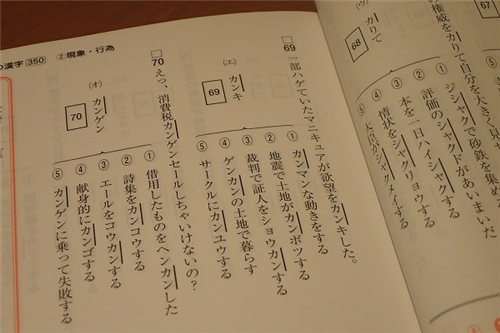 67
の権威をカりて自分を大きく見せ
㈦ カりて
68
① ジシャクで砂鉄を集
② 評価のシャクドがあいまいだ
③ 本を一日ハイシャクする
④ 情状をシャクリョウする
⑤
の漢字 350 ② 現象・行為
□ 69 一部ハゲていたマニキュアが欲望をカンキした。
(エ) カンキ
69
① カンマンな動きをする
② 地震で土地がカンボツする
③ 裁判で証人をショウカンする
④ ゲンカンの土地で暮らす
⑤ サークルにカンユウする
□ 70 えっ、消費税カンゲンセールしちゃいけないの？
(オ) カンゲン
70
① 借用したものをヘンカンした
② 詩集をカンコウする
③ エールをコウカンする
④ 献身的にカンゴする
⑤ カンゲンに乗って失敗する